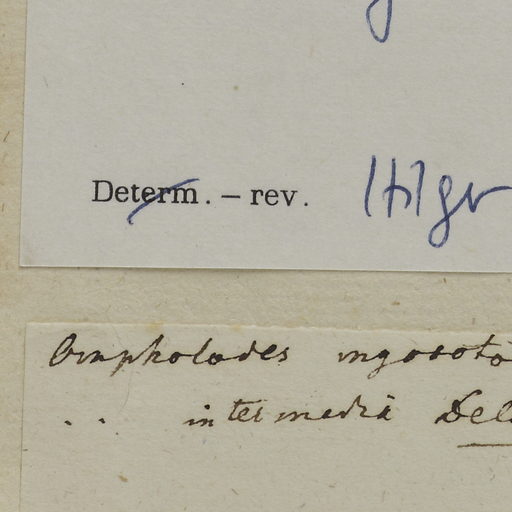 Determ. – rev. Hilger
Omphalodes myosoto
. . intermedia Del